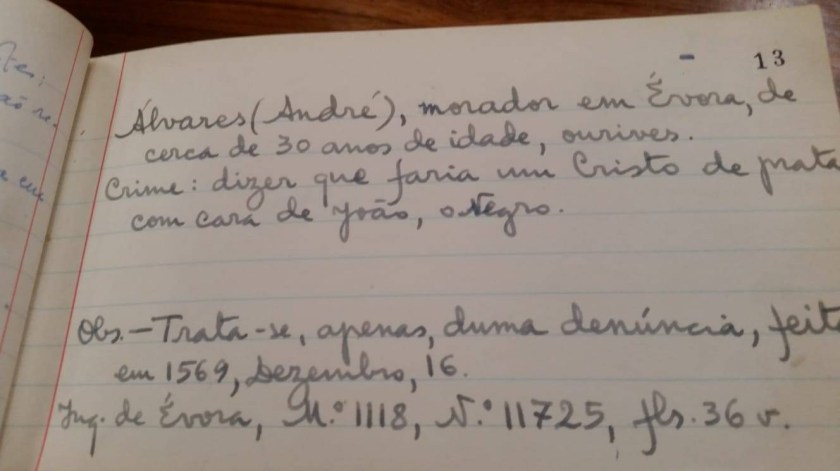 - 13
Álvares (André), morador em Évora, de
cerca de 30 anos de idade, ourives.
Crime: dizer que faria um Cristo de prata
com cara de João, o Negro.
Obs. — Trata-se, apenas, duma denúncia, feit
em 1569, Dezembro, 16.
Inq. de Évora, M.º 1118, N.º 11725, fls. 36 v.